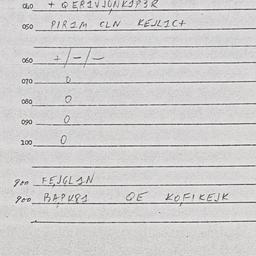 040 + QER1VJONKJP3R
050 PIR1M CLN KEJL1C+
060 +/-/-
070 0
080 0
090 0
100 0
900 FEJGL1N
900 BAPU81 QE KOFIKEJK